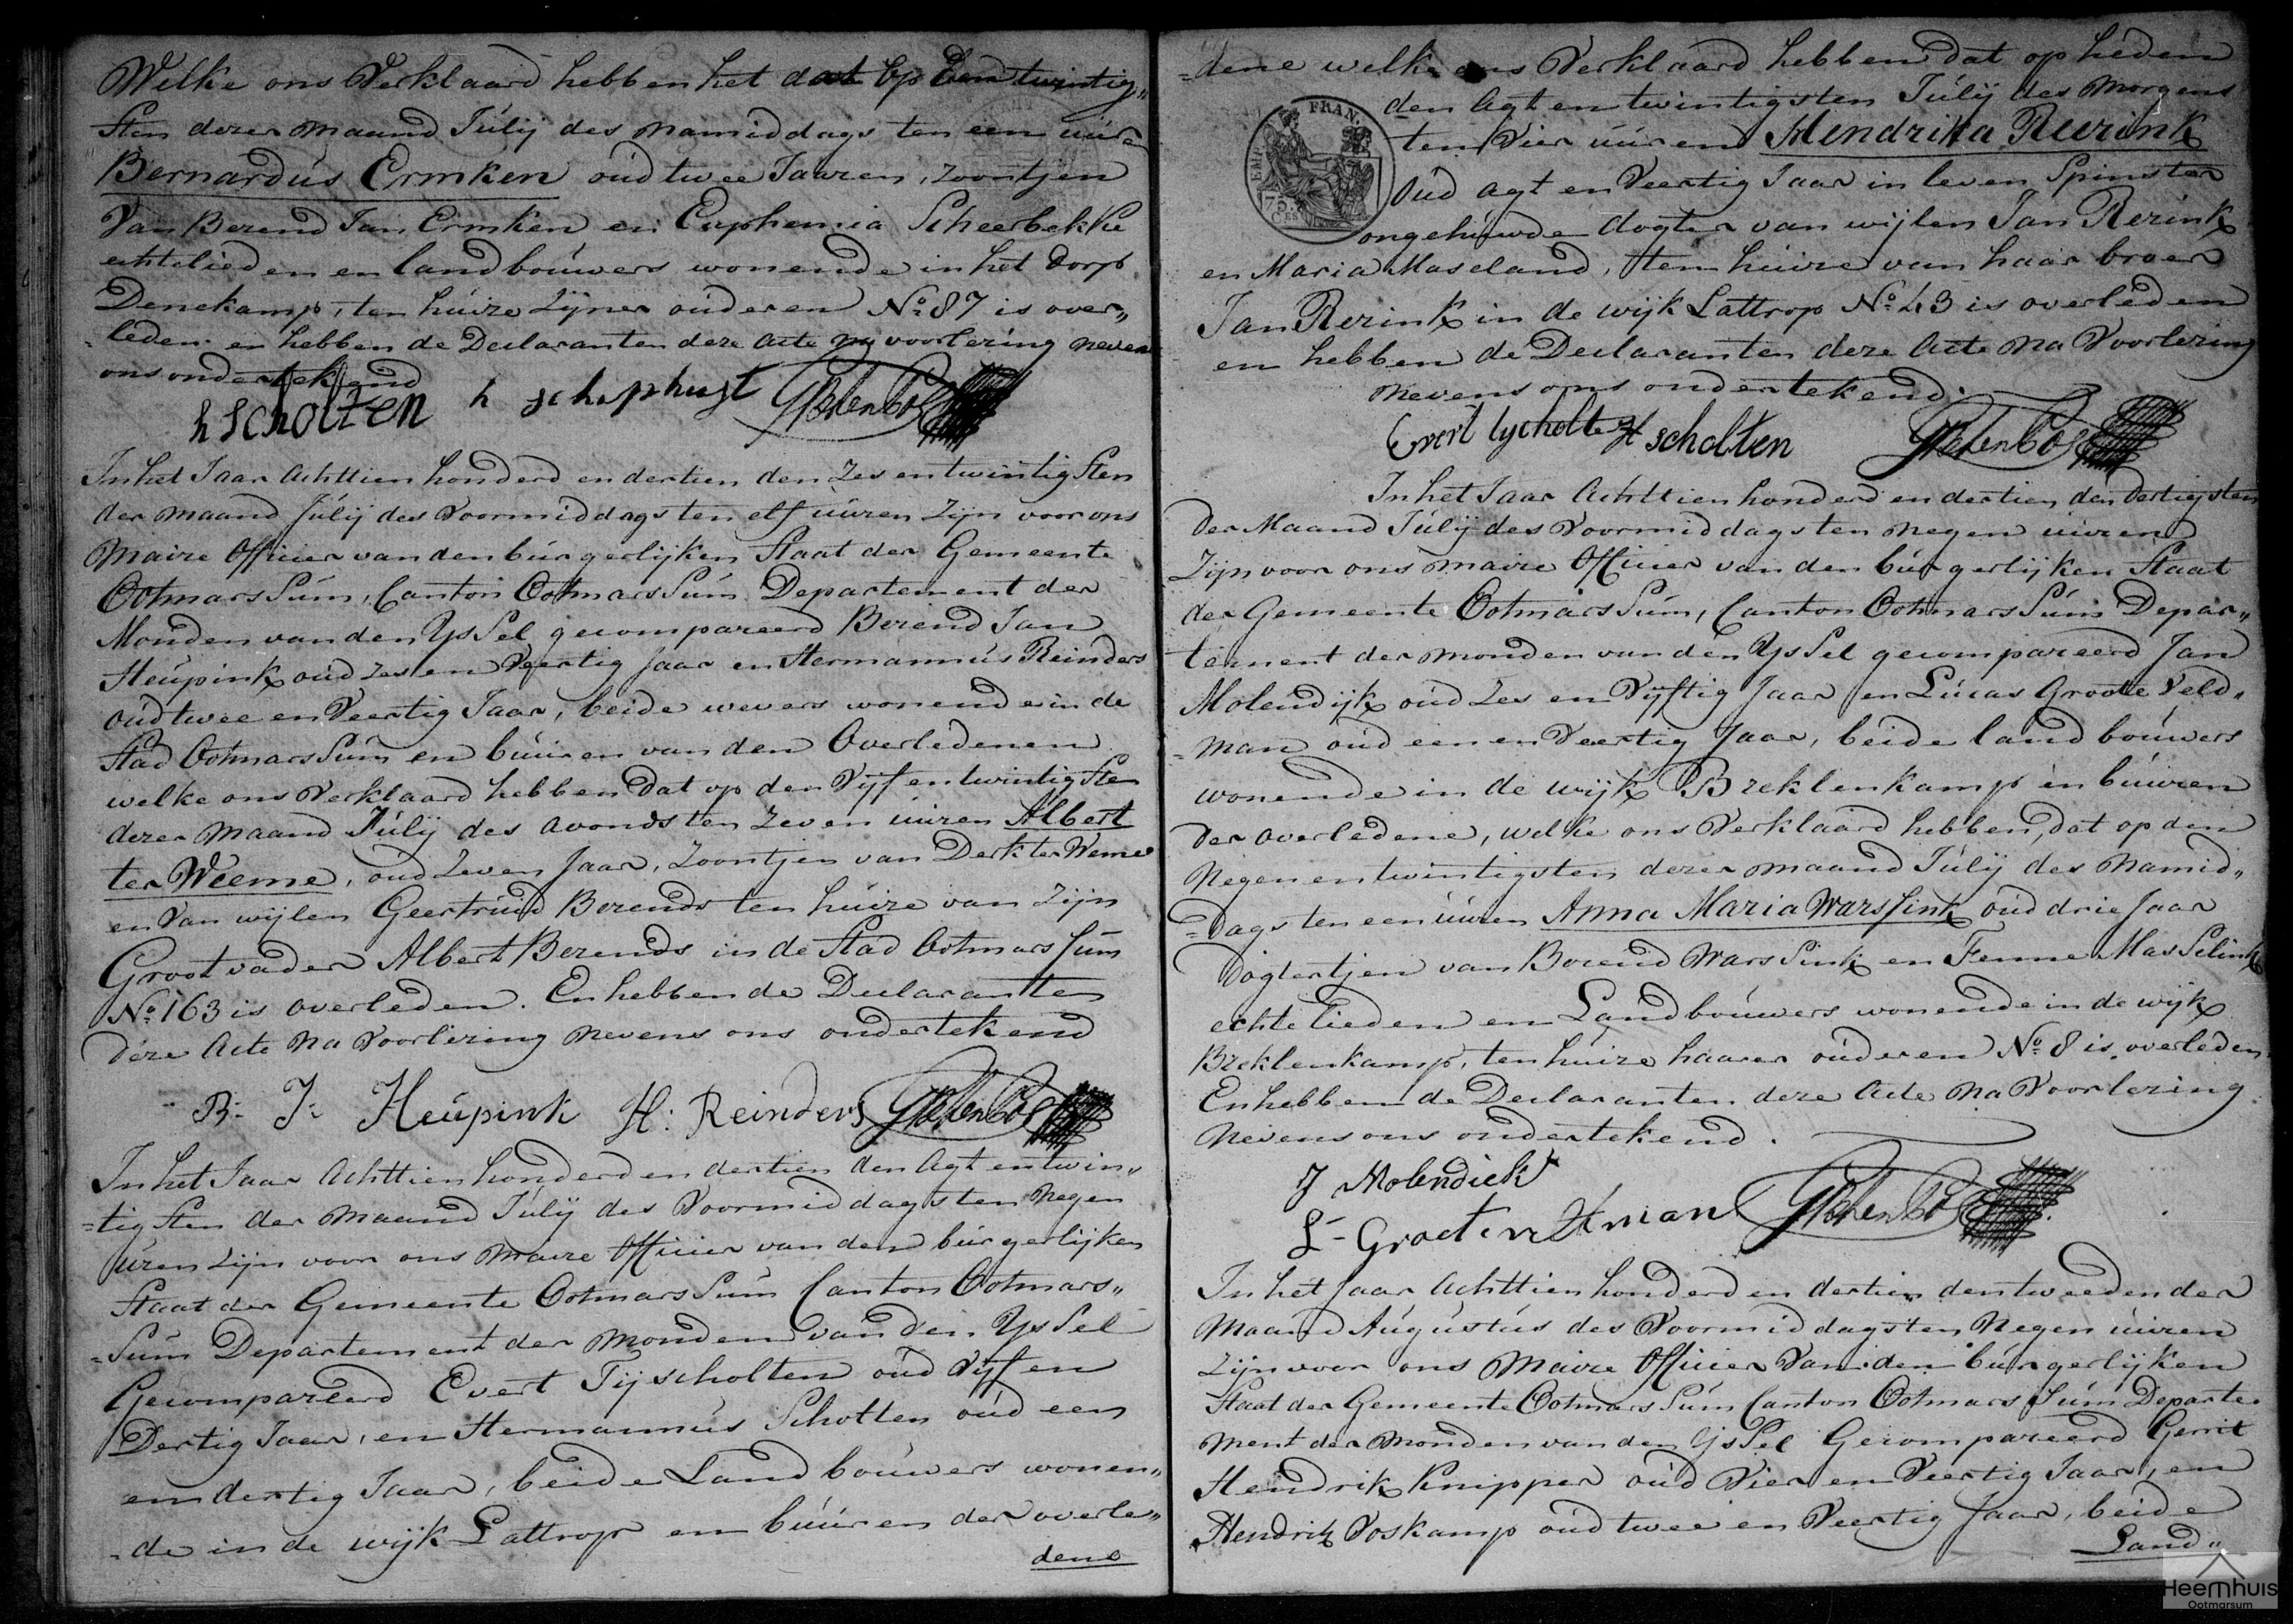 Welke ons Verklaard hebben het dat op Een twintig„
sten dezer maand Julij des namiddags ten een uur
Bernardus Ermken oud twee Jaaren, zoontjen
Van Berend Jan Ermken en Euphemia Scheerbekke
echtelieden en landbouwers wonende in het dorp
Denekamp, ten huize zijner ouderen No 87 is over„
leden en hebben de Declaranten deze Acte na voorlezing neven
ons ondertekend
h scholten h schephuyt
In het Jaar Achttien honderd en dertien den Zes en twintigsten
der maand Julij des Voormiddags ten elf uuren Zijn voor ons
Maire Officier van den burgerlijken Staat der Gemeente
Ootmarssum, Canton Ootmarssum Departement der
Monden van den Yssel gecompareerd Berend Jan
Heupink oud zes en Veertig Jaar en Hermannus Reinders
oud twee en Veertig Jaar, beide wevers wonende in de
Stad Ootmarssum en buuren van den Overledenen
welke ons Verklaard hebben Dat op den Vijf en twintigsten
dezer Maand Julij des Avonds ten Zeven uuren Albert
ter Weeme, oud Zeven Jaar, Zoontjen van Derk ter Weme
en Van wijlen Geertruid Berends ten huize van Zijn
Grootvader Albert Berends in de Stad Ootmarssum
No 163 is overleden. En hebben de Declaranten
deze Acte Na Voorlezing nevens ons ondertekend
B: J: Heupink H: Reinders
In het Jaar Achttien honderd en dertien den Agt en twin„
=tigsten der Maand Julij des Voormiddags ten Negen
uren Zijn voor ons Maire Officier van den burgerlijken
Staat der Gemeente Ootmarssum Canton Ootmars„
=sum Departement der Monden van den Yssel
Gecompareerd Evert Tijscholten oud Vijf en
Dertig Jaar, en Hermannus Scholten oud een
en dertig Jaar, beide Landbouwers wonen„
=de in de wijk Lattrop en buuren der overle„
dene
=dene welke ons Verklaard hebben dat op heden
den Agt en twintigsten Julij des Morgens
ten Vier uuren Hendrika Reerink
Oud agt en Veertig Jaar in leven Spinster
ongehuwde dogter van wijlen Jan Rerink
en Maria Maseland, ten huize van haar broer
Jan Rerink in de wijk Lattrop No 43 is overleden
en hebben de Declaranten deze Acte na Voorlezing
nevens ons ondertekend.
EMP. FRAN.
75
CES
Evert tyscholte H scholten
In het Jaar Achttien honderd en dertien den dertigsten
der Maand Julij des Voormiddags ten negen uuren
Zijn voor ons Maire Officier van den burgerlijken Staat
der Gemeente Ootmarssum, Canton Ootmarssum Depar„
tement der Monden van den Yssel gecompareerd Jan
Molendijk oud Zes en Vijftig Jaar en Lucas Groote Veld„
=man oud een en Veertig Jaar, beide landbouwers
wonende in de wijk Breklenkamp en buuren
der overledene, welke ons Verklaard hebben, dat op den
Negen en twintigsten dezer maand Julij des Namid„
=dags ten een uuren Anna Maria Warssink oud drie Jaar
dogtertjen van Berend Warssink en Fenne Masselink
echtelieden en Landbouwers wonende in de wijk
Breklenkamp, ten huize haarer ouderen No 8 is overleden.
En hebben de Declaranten deze Acte Na Voorlezing
Nevens ons ondertekend.
J Molendiek
L- Groeten
In het Jaar Achttien honderd en dertien den tweeden der
Maand Augustus des Voormiddags ten Negen uuren
Zijn voor ons Maire Officier Van den burgerlijken
Staat der Gemeente Ootmarssum Canton Ootmarssum Departe„
Ment der Monden van den Yssel Gecompareerd Gerrit
Hendrik Knipper oud Vier en Veertig Jaar, en
Hendrik Voskamp oud twee en Veertig Jaar, beide
Land„
Heemhuis
Ootmarsum